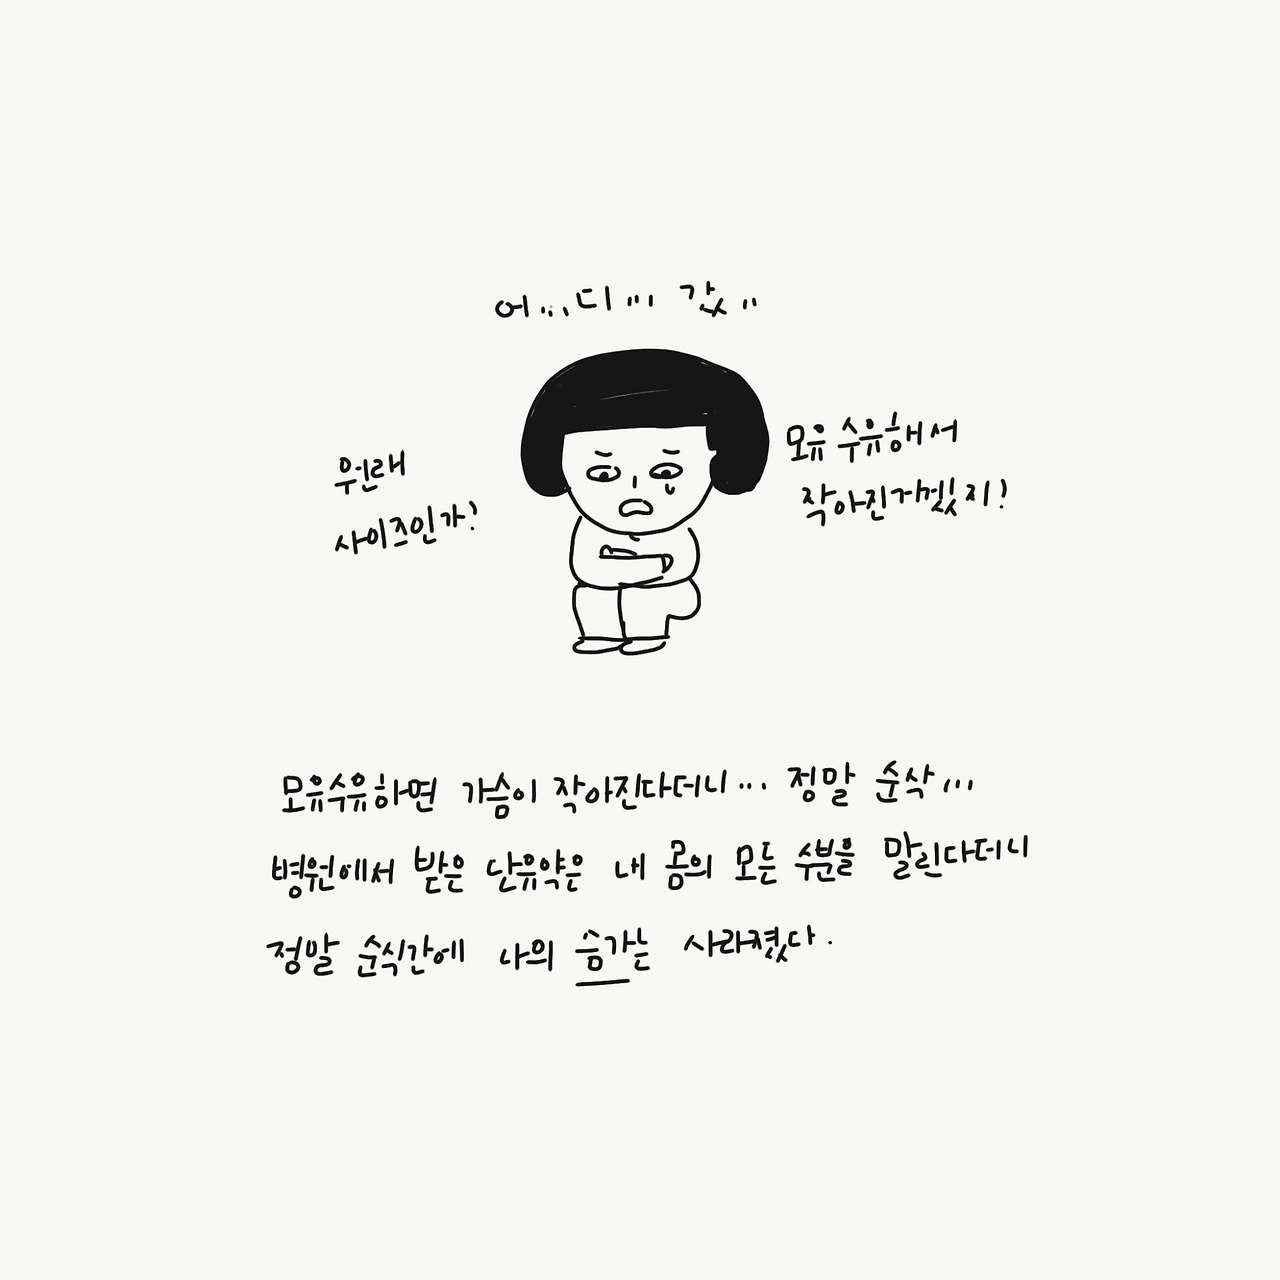 어....디... 갔..
원래
사이즈인가?
모유 수유해서
작아진거겠지?
모유수유하면 가슴이 작아진다더니... 정말 순삭...
병원에서 받은 단유약은 내 몸의 모든 수분을 말린다더니
정말 순식간에 나의 슴가는 사라졌다.